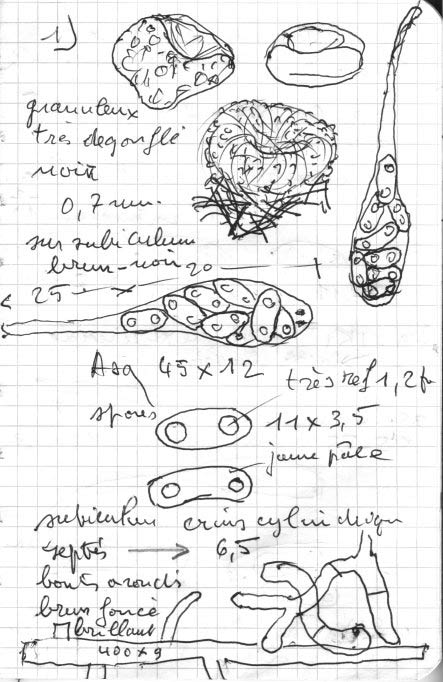 1)
granuleux
très dégonflé
noir
0,7 mm.
sur subiculum
brun-noir
20
25
Asq 45 x 12
très ref 1,2 µ
spores
11 x 3,5
jaune pâle
subiculum crins cylindriq
septés → 6,5
bouts arondis
brun foncé
brillant
400 x 9